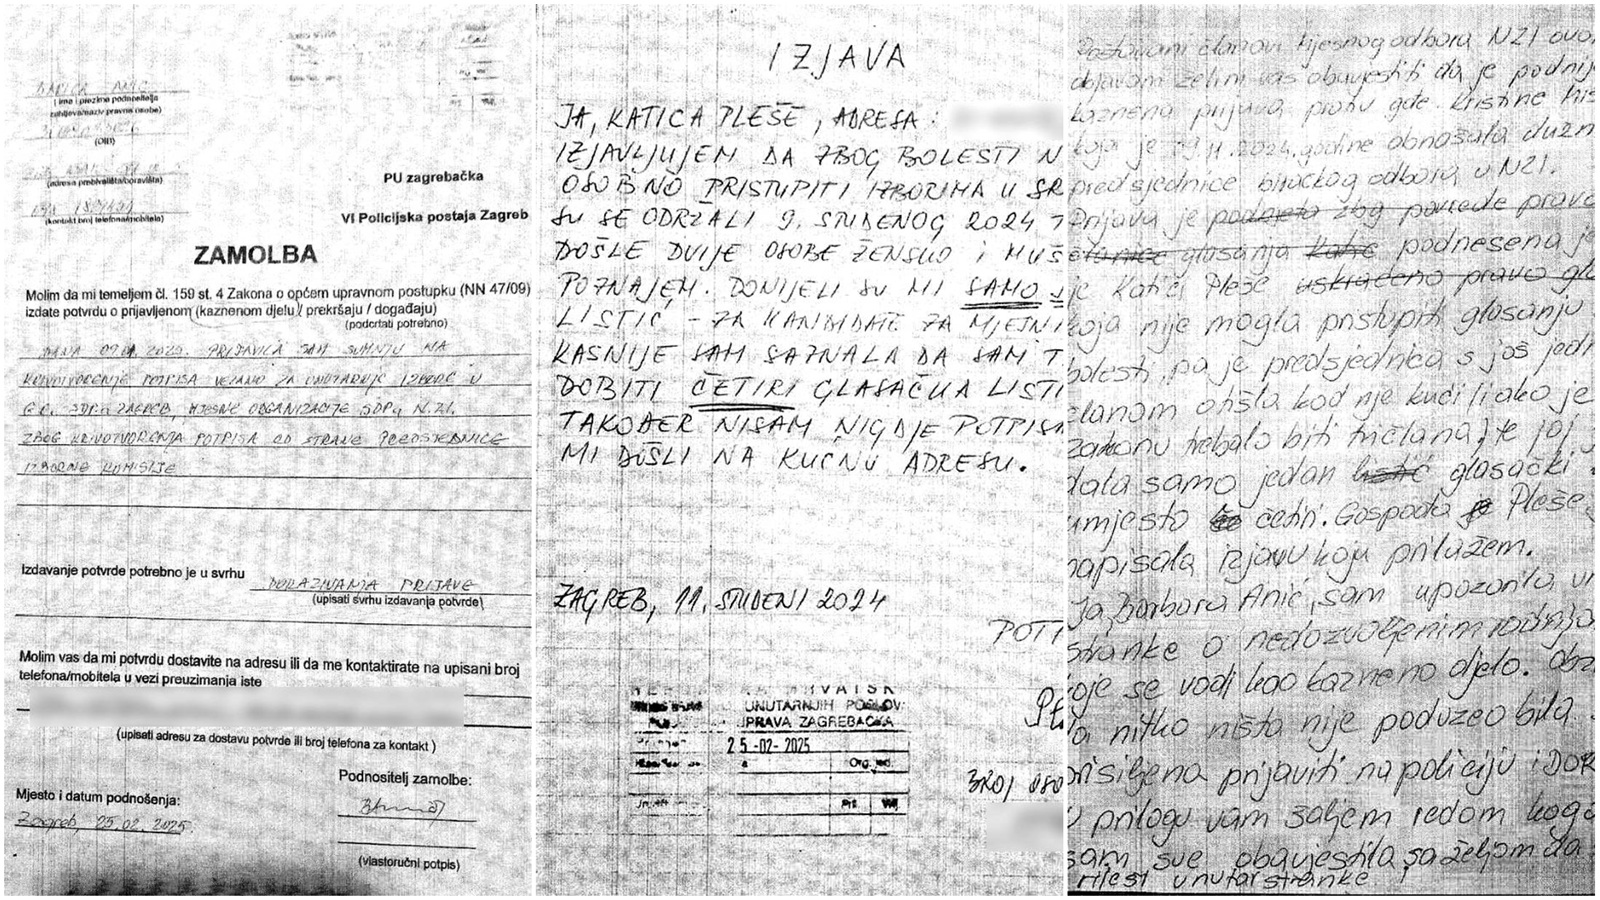 (ime i prezime podnositelja
zahtjeva/naziv pravne osobe)
(OIB)
(adresa prebivališta/boravišta)
(kontakt broj telefona/mobitela)
PU zagrebačka
VI Policijska postaja Zagreb
ZAMOLBA
Molim da mi temeljem čl. 159 st. 4 Zakona o općem upravnom postupku (NN 47/09)
izdate potvrdu o prijavljenom (kaznenom djelu / prekršaju / događaju)
(podcrtati potrebno)
DANA 09.01.2025. PRIJAVILA SAM SUMNJU NA
KRIVOTVORENJE POTPISA VEZANO ZA UNUTARNJE IZBORE U
SDP-ZAGREB, MJESNE ORGANIZACIJE SDP N.Z1.
ZBOG KRIVOTVORENJA POTPISA OD STRANE PREDSJEDNICE
IZBORNE KOMISIJE
Izdavanje potvrde potrebno je u svrhu
DOKAZIVANJA PRIJAVE
(upisati svrhu izdavanja potvrde)
Molim vas da mi potvrdu dostavite na adresu ili da me kontaktirate na upisani broj
telefona/mobitela u vezi preuzimanja iste
(upisati adresu za dostavu potvrde ili broj telefona za kontakt )
Podnositelj zamolbe:
Mjesto i datum podnošenja:
Zagreb, 25.02.2025.
(vlastoručni potpis)
IZJAVA
JA, KATICA PLEŠE, ADRESA:
IZJAVLJUJEM DA ZBOG BOLESTI N
OSOBNO PRISTUPITI IZBORIMA U SR
SU SE ODRŽALI 9. STUDENOG 2024 T
DOŠLE DVIJE OSOBE ŽENSKO I MUŠ
POZNAJEM. DONIJELI SU MI SAMO J
LISTIĆ - ZA KANDIDATE ZA MJESNI
KASNIJE SAM SAZNALA DA SAM T
DOBITI ČETIRI GLASAČKA LISTI
TAKOĐER NISAM NIGDJE POTPISA
MI DOŠLI NA KUĆNU ADRESU.
ZAGREB, 11. STUDENI 2024
POTI
PL
HRVATSK
UNUTARNJIH POSLOV
UPRAVA ZAGREBAČKA
25-02-2025
Org. jed.
BROJ OSO
Poštovani članovi Mjesnog odbora NZ1 ovo
objavom želim vas obavjestiti da je podnij
kaznena prijava protv gđe. Kristine His
koja je 09.11.2024. godine obnašala dužn
predsjednice biračkog odbora u NZ1.
Prijava je podnjeta zbog povrede prava
glasanja podnesena je
je Katici Pleše uskraćeno pravo gla
koja nije mogla pristupiti glasanju
bolesti, pa je predsjednica s još jedn
članom otišla kod nje kući (iako je
zakonu trebalo biti tri člana) te joj
dala samo jedan listić glasački
umjesto četiri. Gospođa je Pleše
napisala izjavu koju prilažem.
Ja, Barbara Anić, sam upozorila u
stranke o nedozvoljenim radnja
koje se vodi kao kazneno djelo. Obz
da nitko ništa nije poduzeo bila
prisiljena prijaviti na policiju i DOR
U prilogu vam šaljem redom koga
sam sve obavjestila sa željom da
unutar stranke.